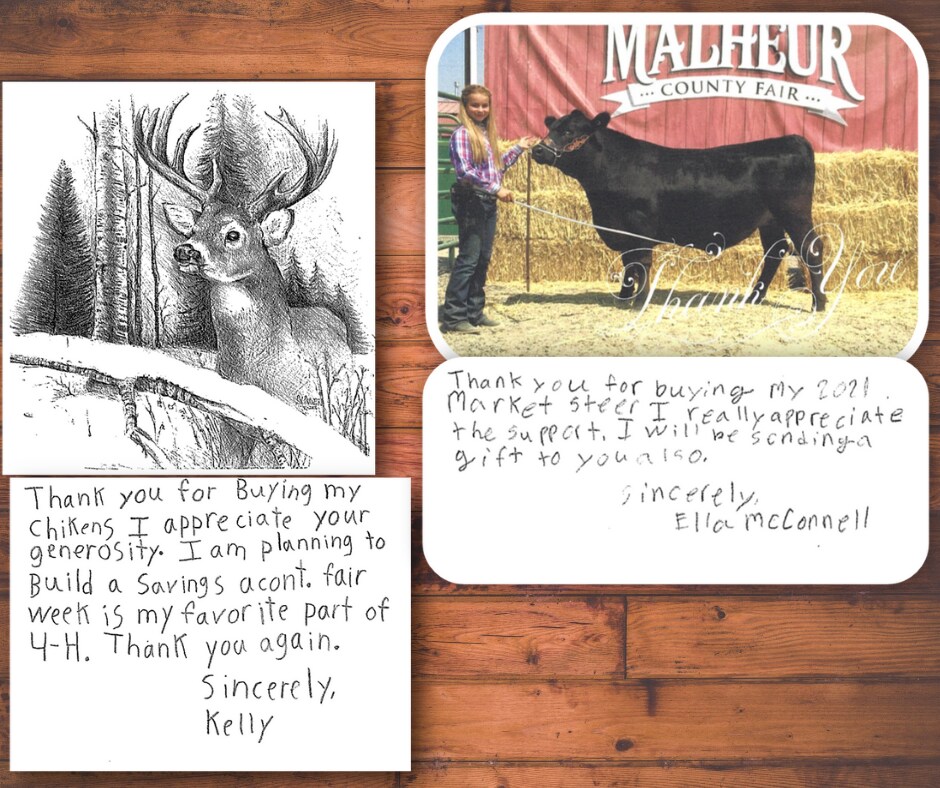 MALHEUR
... COUNTY FAIR ...
Thank You
Thank you for buying my 2021
Market steer I really appreciate
the support. I will be sending a
gift to you also.
Sincerely,
Ella McConnell
Thank you for Buying my
chikens I appreciate your
generosity. I am planning to
Build a Savings acont. fair
week is my favorite part of
4-H. Thank you again.
Sincerely,
Kelly